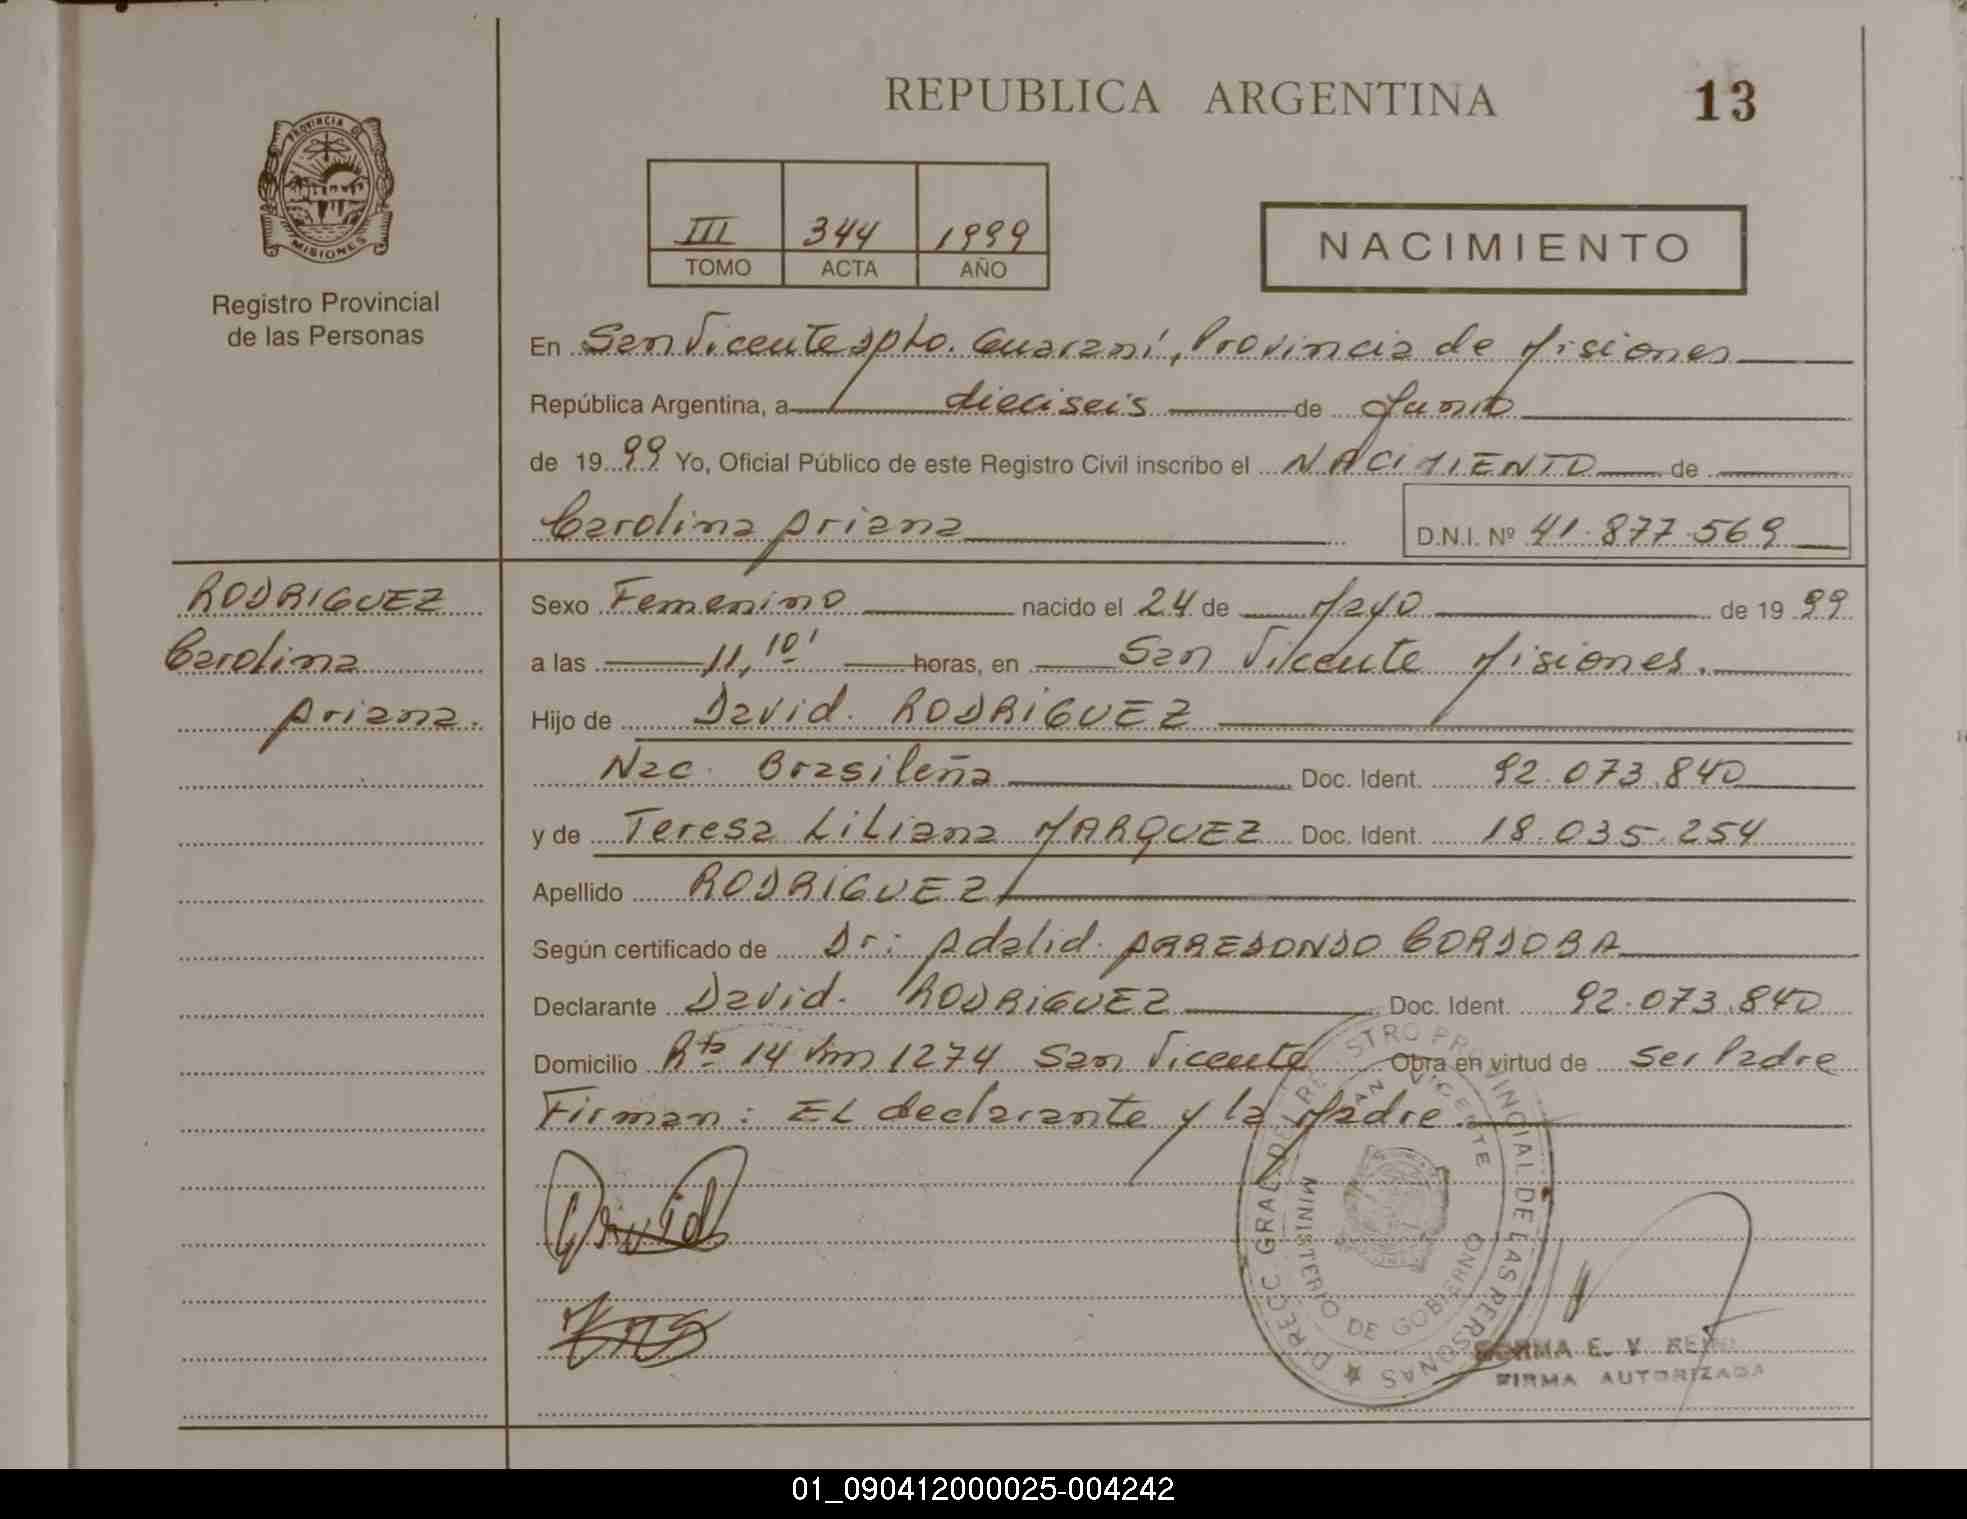 REPUBLICA ARGENTINA
13
PROVINCIA DE
MISIONES
Registro Provincial
de las Personas
III 344 1999
TOMO ACTA AÑO
NACIMIENTO
En San Vicente Dpto. Guaraní, Provincia de Misiones
República Argentina, a dieciseis de Junio
de 1999 Yo, Oficial Público de este Registro Civil inscribo el NACIMIENTO de
Carolina Ariana
D.N.I. Nº 41.877.569
RODRIGUEZ
Carolina
Ariana.
Sexo Femenino nacido el 24 de Mayo de 1999
a las 11,10' horas, en San Vicente Misiones.
Hijo de David. RODRIGUEZ
Nac. Brasileña Doc. Ident. 92.073.840
y de Teresa Liliana MARQUEZ Doc. Ident. 18.035.254
Apellido RODRIGUEZ
Según certificado de Dr: Adalid. ARREDONDO CORDOBA
Declarante David. RODRIGUEZ Doc. Ident. 92.073.840
Domicilio Rta 14 km 1274 San Vicente Obra en virtud de ser Padre
Firman: EL declarante y la Madre.
David
DIRECC GRAL DEL REGISTRO PROVINCIAL DE LAS PERSONAS
SAN VICENTE
MINISTERIO DE GOBIERNO
E. V.
FIRMA AUTORIZADA
01_090412000025-004242